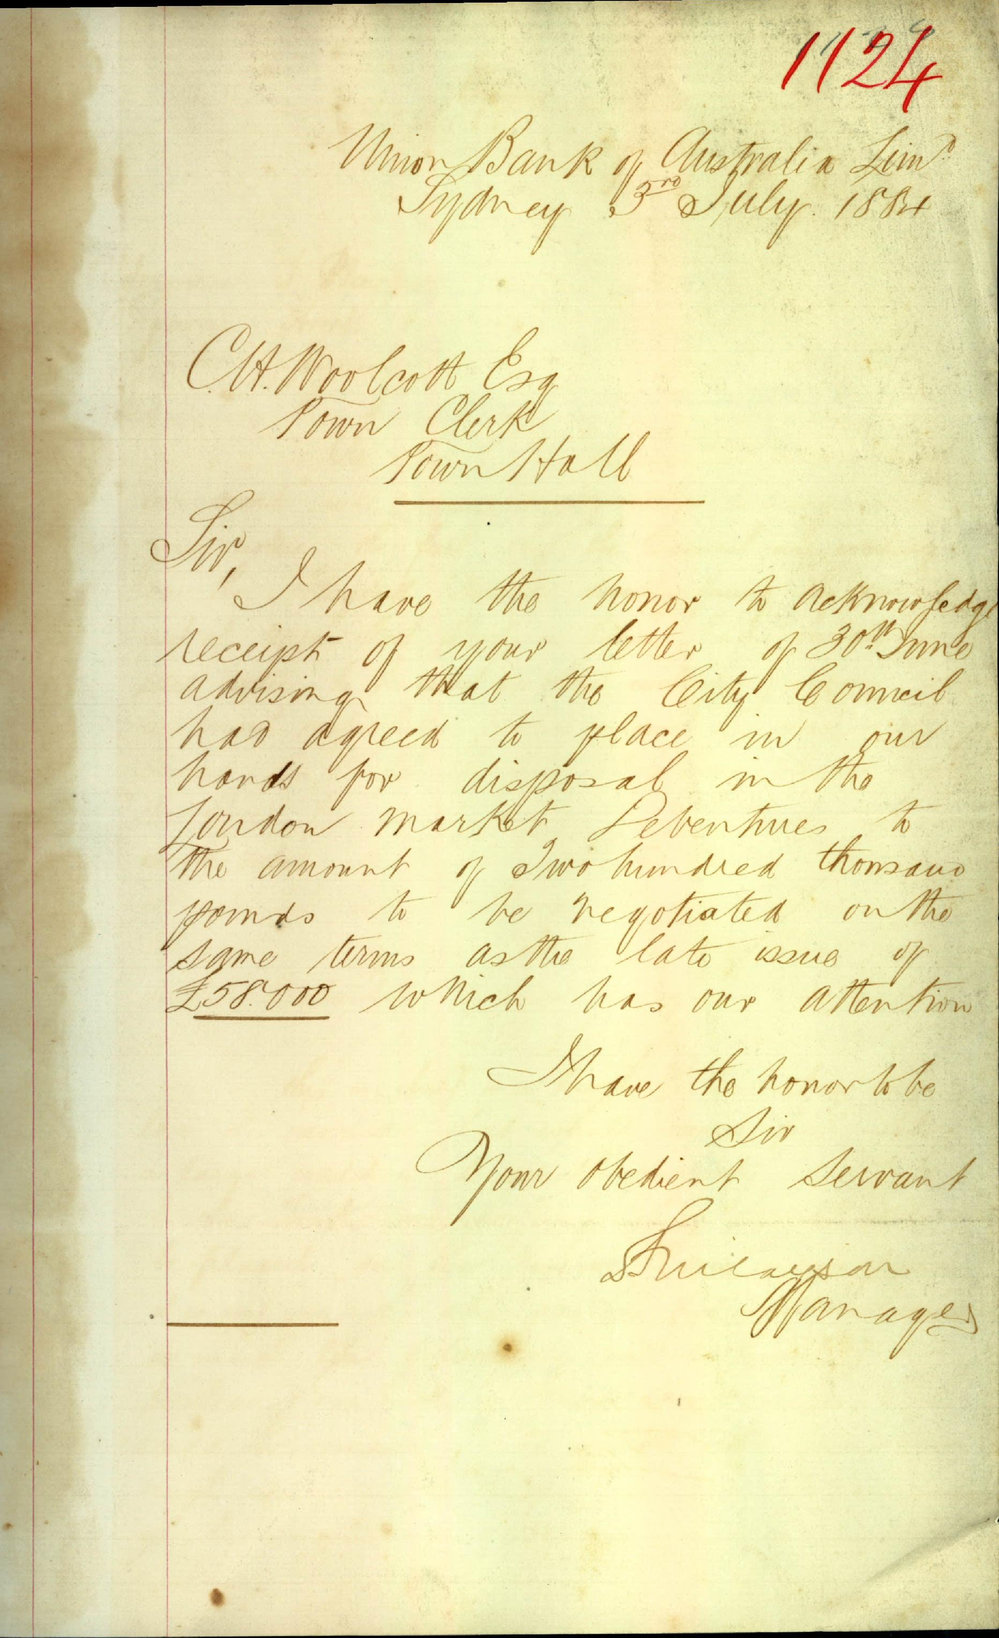 1124
Union Bank of Australia Limd.
Sydney 3rd July. 1884
C.H. Woolcott Esq
Town Clerk
Town Hall
Sir,
I have the honor to acknowledge
receipt of your letter of 30th June
advising that the City Council
had agreed to place in our
hands for disposal in the
London market Debentures to
the amount of Two hundred thousand
pounds to be negotiated on the
same terms as the late issue of
£58.000 which has our attention
I have the honor to be
Sir
Your obedient servant
Manager